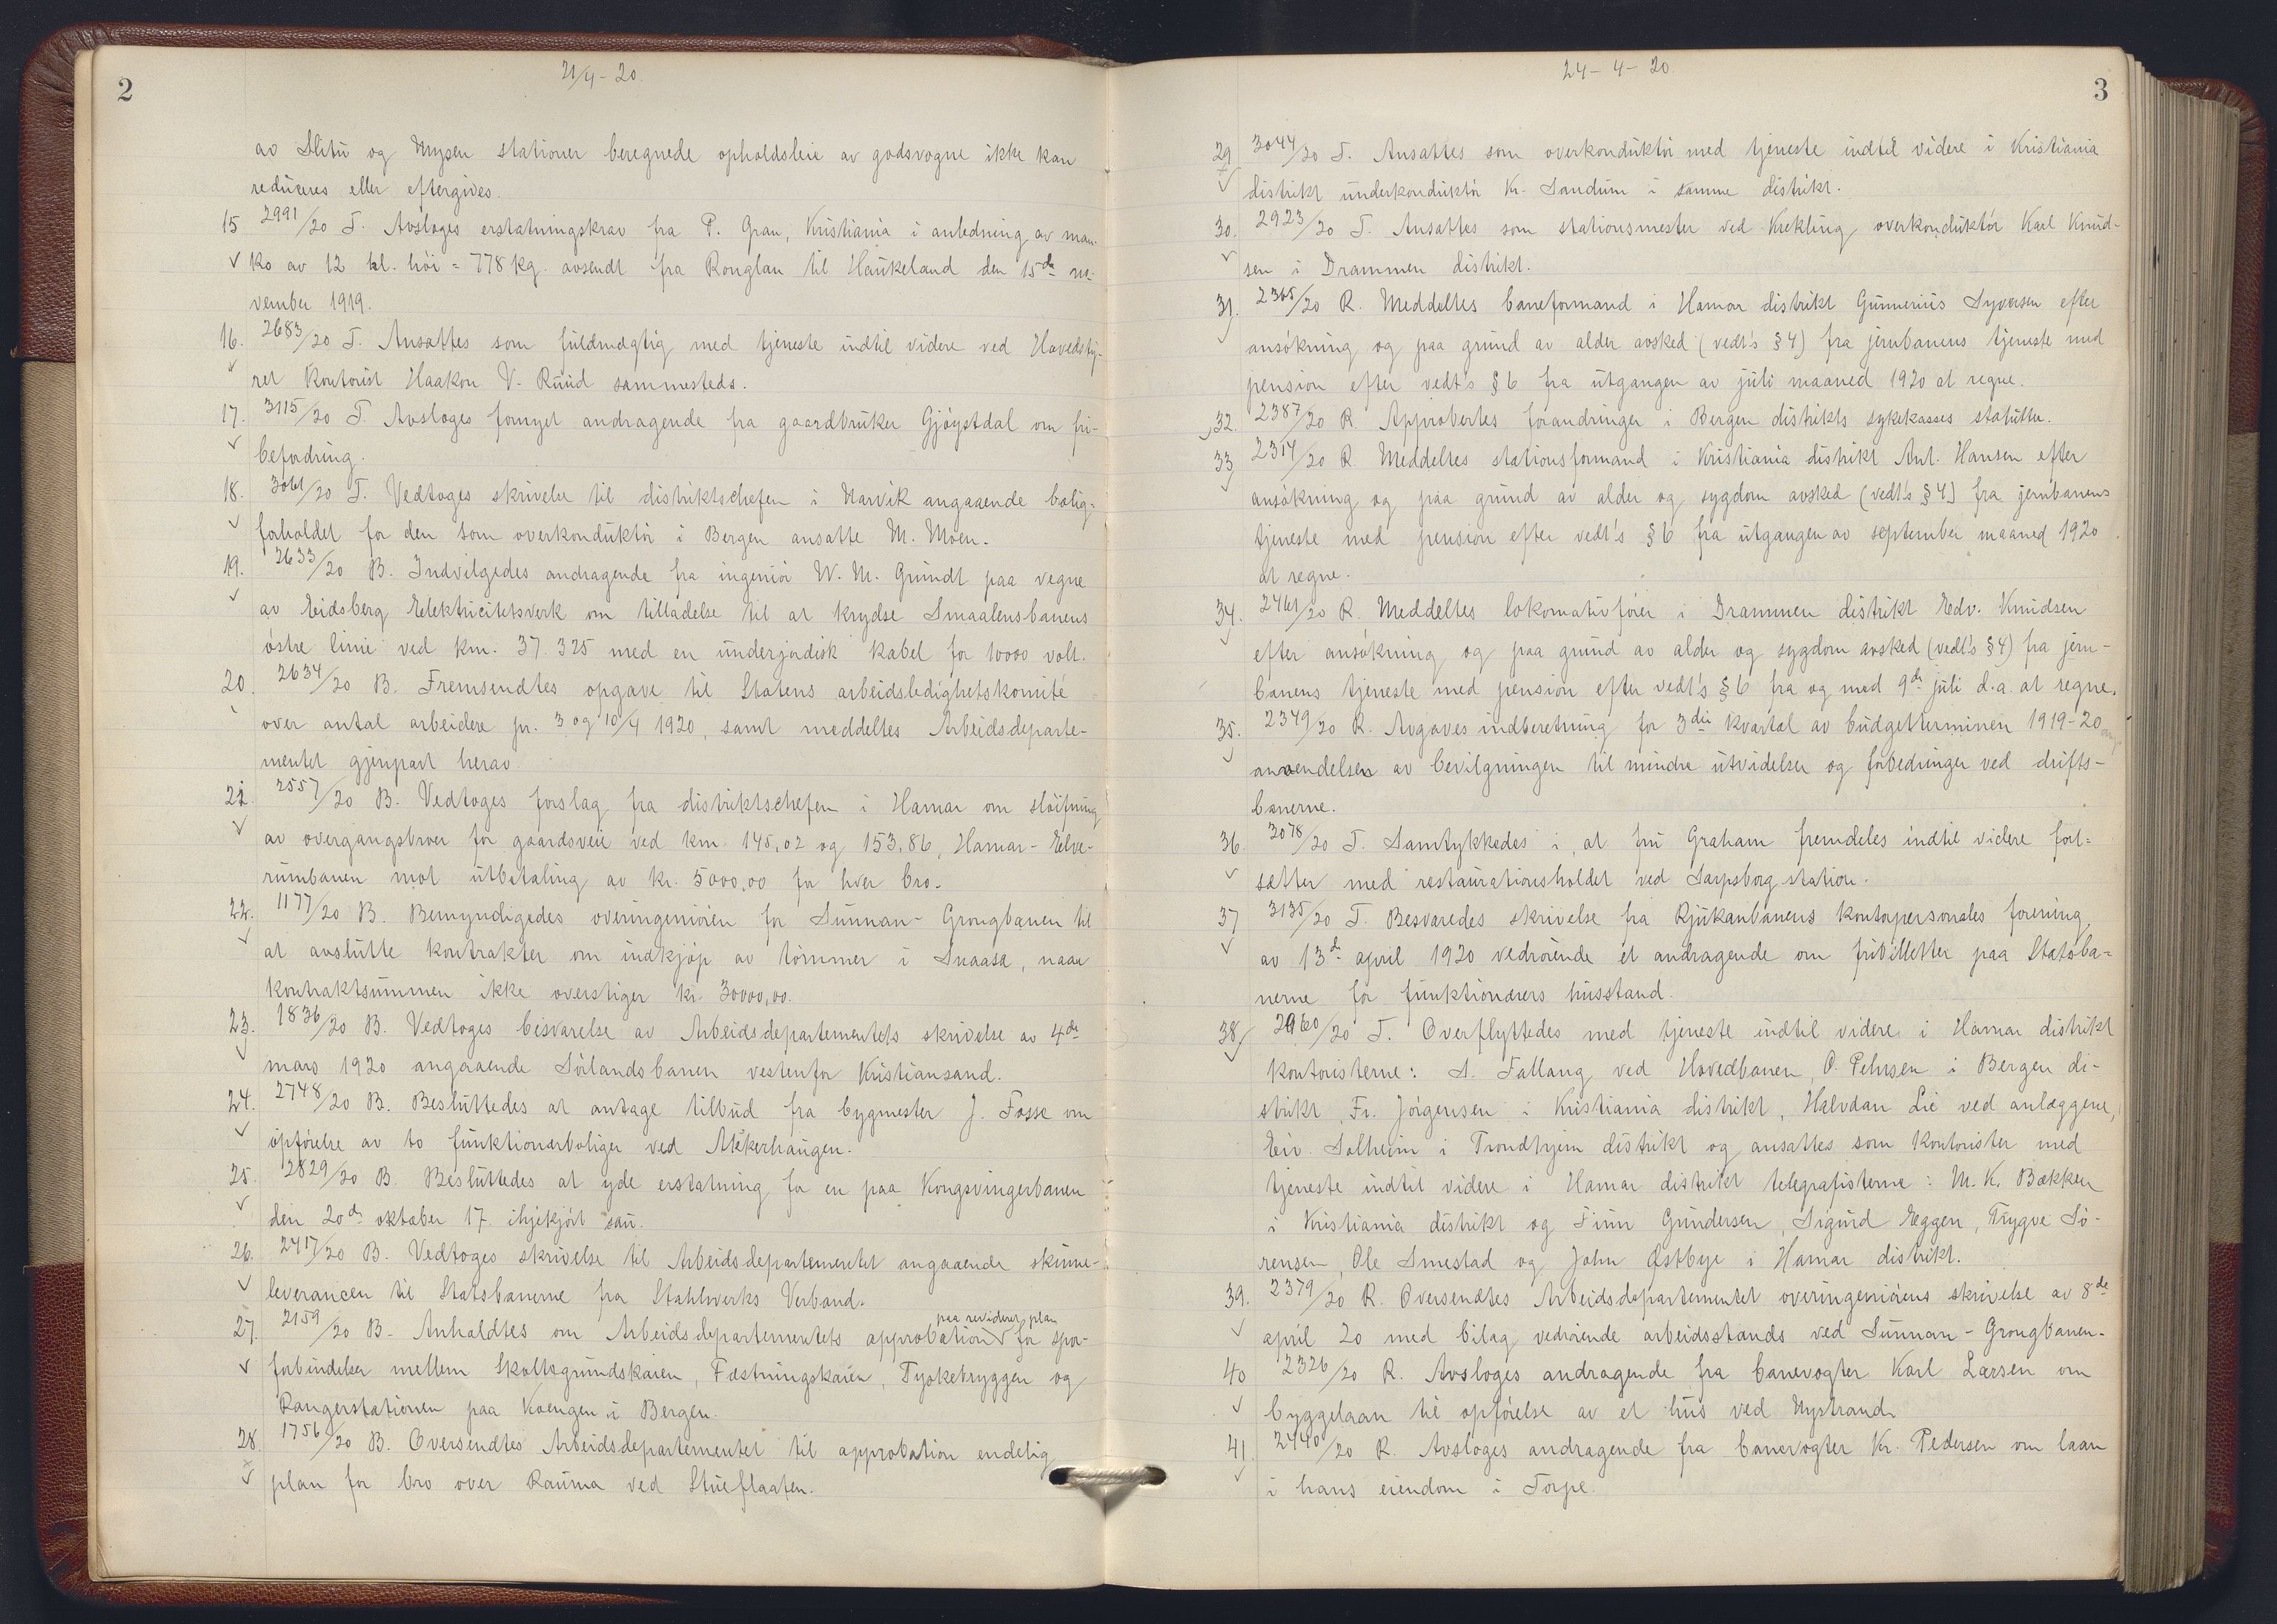 2
21/4-20.
av Slitu og Mysen stationer beregnede opholdsleie av godsvogne ikke kan
reduceres eller eftergives.
15 2991/20 T. Avsloges erstatningskrav fra P. Gran, Kristiania i anledning av man-
ko av 12 bl. höi = 778 kg. avsendt fra Ronglan til Haukeland den 15de no-
vember 1919.
16. 2683/20 T. Ansattes som fuldmægtig med tjeneste indtil videre ved Hovedsty-
ret kontorist Haakon V. Ruud sammesteds.
17. 3115/20 T. Avsloges fornyet andragende fra gaardbruker Gjöystdal om fri-
befordring.
18. 3061/20 T. Vedtoges skrivelse til distriktschefen i Narvik angaaende bolig-
forholdet for den som overkonduktör i Bergen ansatte M. Moen.
19. 2633/20 B. Indvilgedes andragende fra ingeniör W. M. Grundt paa vegne
av Eidsberg Elektricitetsverk om tilladelse til at krydse Smaalensbanens
östre linie ved km. 37.325 med en underjordisk kabel for 10000 volt.
20. 2634/20 B. Fremsendtes opgave til Statens arbeidsledighetskomité
over antal arbeidere pr. 3 og 10/4 1920, samt meddeltes Arbeidsdeparte-
mentet gjenpart herav.
21. 2557/20 B. Vedtoges forslag fra distriktschefen i Hamar om slöifning
av overgangsbroer for gaardsveie ved km. 145,02 og 153,86, Hamar-Elve-
rumbanen mot utbetaling av kr. 5000,00 for hver bro.
22. 1177/20 B. Bemyndigedes overingeniören for Sunnan-Grongbanen til
at avslutte kontrakter om indkjöp av tömmer i Snaasa, naar
kontraktsummen ikke overstiger kr. 30000,00.
23. 1836/20 B. Vedtoges besvarelse av Arbeidsdepartementets skrivelse av 4de
mars 1920 angaaende Sörlandsbanen vestenfor Kristiansand.
24. 2748/20 B. Besluttedes at antage tilbud fra bygmester J. Fosse om
opförelse av to funktionærboliger ved Akkerhaugen.
25. 2829/20 B. Besluttedes at yde erstatning for en paa Kongsvingerbanen
den 20de oktober 17. ihjelkjört sau.
26. 2417/20 B. Vedtoges skrivelse til Arbeidsdepartementet angaaende skinne-
leverancen til Statsbanerne fra Stahlwerks Verband.
27. 2159/20 B. Anholdtes om Arbeidsdepartementets approbation paa revideret plan for spor-
forbindelse mellem Skoltegrundskaien, Fæstningskaien, Tyskebryggen og
Rangerstationen paa Koengen i Bergen.
28. 1756/20 B. Oversendtes Arbeidsdepartementet til approbation endelig
plan for bro over Rauma ved Stueflaaten.
3
24-4-20.
29 3044/20 T. Ansattes som overkonduktör med tjeneste indtil videre i Kristiania
distrikt underkonduktör Kr. Sandum i samme distrikt.
30. 2923/20 T. Ansattes som stationsmester ved Krekling overkonduktör Karl Knud-
sen i Drammen distrikt.
31. 2365/20 R. Meddeltes baneformand i Hamar distrikt Gunnerius Syversen efter
ansökning og paa grund av alder avsked (vedt's § 4) fra jernbanens tjeneste med
pension efter vedt's § 6 fra utgangen av juli maaned 1920 at regne.
32. 2387/20 R. Approbertes forandringer i Bergen distrikts sykekasses statutter.
33 2314/20 R. Meddeltes stationsformand i Kristiania distrikt Ant. Hansen efter
ansökning og paa grund av alder og sygdom avsked (vedt's § 4) fra jernbanens
tjeneste med pension efter vedt's § 6 fra utgangen av september maaned 1920
at regne.
34. 2461/20 R. Meddeltes lokomotivförer i Drammen distrikt Edv. Knudsen
efter ansökning og paa grund av alder og sygdom avsked (vedt's § 4) fra jern-
banens tjeneste med pension efter vedt's § 6 fra og med 9de juli d.a. at regne.
35. 2349/20 R. Avgaves indberetning for 3die kvartal av budgetterminen 1919-20 ang
anvendelsen av bevilgningen til mindre utvidelser og forbedringer ved drifts-
banerne.
36. 3078/20 T. Samtykkedes i, at fru Graham fremdeles indtil videre fort-
sætter med restaurationsholdet ved Sarpsborg station.
37 3135/20 T. Besvaredes skrivelse fra Rjukanbanens kontorpersonales forening
av 13de april 1920 vedrörende et andragende om fribilletter paa Statsba-
nerne for funktionærers husstand.
38. 2960/20 T. Overflyttedes med tjeneste indtil videre i Hamar distrikt
kontoristerne: S. Fallang ved Hovedbanen, O. Pehrsen i Bergen di-
strikt, Fr. Jörgensen i Kristiania distrikt, Halvdan Lie ved anlæggene,
Eiv. Solheim i Trondhjem distrikt og ansattes som kontorister med
tjeneste indtil videre i Hamar distrikt telegrafisterne: M. K. Bakken
i Kristiania distrikt og Finn Gundersen, Sigurd Eggen, Trygve Sö-
rensen, Ole Smestad og John Østbye i Hamar distrikt.
39. 2379/20 R. Oversendtes Arbeidsdepartementet overingeniörens skrivelse av 8de
april 20 med bilag vedrörende arbeidsstands ved Sunnan-Grongbanen.
40 2326/20 R. Avsloges andragende fra banevogter Karl Larsen om
byggelaan til opförelse av et hus ved Nystrand.
41. 2440/20 R. Avsloges andragende fra banevogter Kr. Pedersen om laan
i hans eiendom i Torpe.